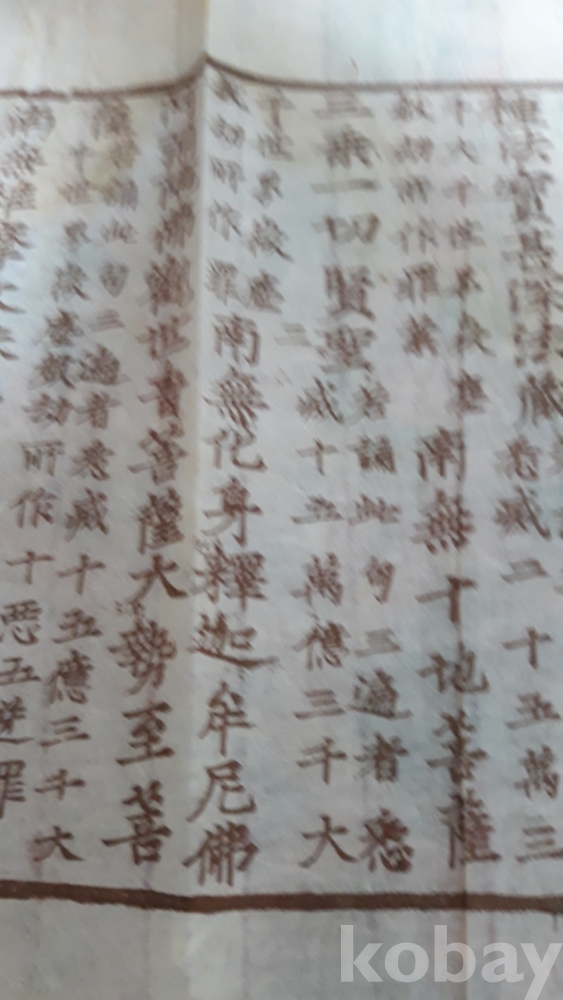 極法寶甚深法藏
悉滅二十五萬三
千大千世界微塵
數劫所作罪業
南無十地菩薩
三乘一切賢聖
若誦此句二遍者悉
滅十五萬億三千大
千世界微塵
數劫所作罪
南無化身釋迦牟尼佛
佛觀世音菩薩大勢至菩
薩
若誦此句二遍者悉滅十五億三千大
千世界微塵數劫所作十惡五逆罪
南無
kobay